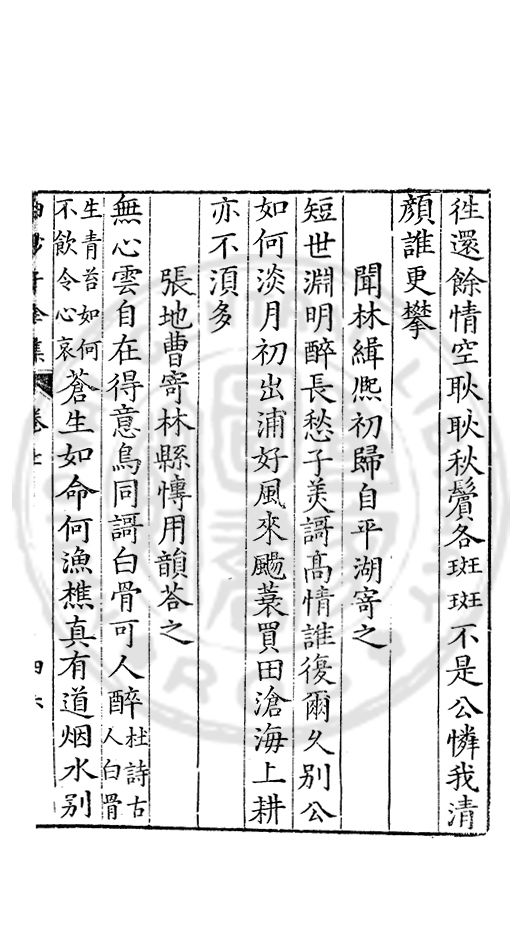 徃還餘情空耿耿秋鬢各斑斑不是公憐我清
顏誰更攀
聞林緝熈初歸自平湖寄之
短世淵明醉長愁子美謌髙情誰復爾久别公
如何淡月初出浦好風來颺蓑買田滄海上耕
亦不湏多
張地曹寄林縣愽用韻荅之
無心雲自在得意鳥同謌白骨可人醉杜詩古人白骨
生青苔如何不飲令心哀蒼生如命何漁樵真有道烟水别
卷七